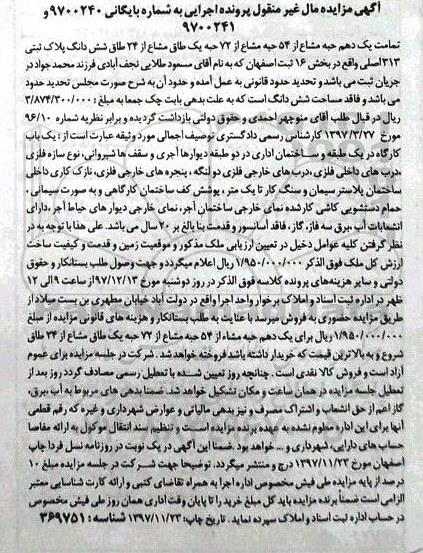 آگهی مزایده مال غیر منقول پرونده اجرایی به شماره بایگانی ۹۷۰۰۲۴۰ و
۹۷۰۰۲۴۱
تمامت یک دهم حبه مشاع از ۵۴ حبه مشاع از ۷۲ حبه یک طاق مشاع از ۲۴ طاق شش دانگ پلاک ثبتی
۳۱۳اصلی واقع در بخش ۱۶ ثبت اصفهان که به نام آقای مسعود طلایی نجف آبادی فرزند محمدجواد در
جریان ثبت می باشد و تحدید حدود قانونی به عمل آمده و حدود آن به شرح صورت مجلس تحدید حدود
می باشد و فاقد مساحت شش دانگ است که به علت بدهی بابت چک جمعا به مبلغ : ۳/۸۷۴/۳۰۰/۰۰۰
ریال در قبال طلب آقای منوچهر احمدی و حقوق دولتی بازداشت گردیده و برابر نظریه شماره ۹۶/۱۰
مورخ ۱۳۹۷/۳/۲۷ کارشناس رسمی دادگستری توصیف اجمالی مورد وثیقه عبارت است از : یک باب
کارگاه در یک طبقه و ساختمان اداری در دو طبقه دیوارها آجری و سقف ها شیروانی، نوع سازه فلزی
،درب های داخلی فلزی،درب های خارجی فلزی دولنگه ، پنجره های خارجی فلزی، نازک کاری داخلی
ساختمان پلاستر سیمان و سنگ کار تا یک متر ، پوشش کف ساختمان کارگاهی و به صورت سیمانی ،
حمام دستشویی کاشی کار شده نمای خارجی ساختمان آجر، نمای خارجی دیوار های حیاط آجر ،دارای
انشعابات آب ،برق سه فاز، گاز، فاقد آسانسور و قدمت بنا بالغ بر ۲۰ سال می باشد. علی هذا با توجه به در
نظر گرفتن کلیه عوامل دخیل در تعیین ارزیابی ملک مذکور و موقعیت زمین و قدمت و کیفیت ساخت
ارزش کل ملک فوق الذکر ۱/۹۵۰/۰۰۰/۰۰۰ ریال اعلام میگردد و جهت وصول طلب بستانکار و حقوق
دولتی و سایر هزینه‌های پرونده کلاسه فوق الذکر در روز دوشنبه مورخ ۹۷/۱۲/۱۳ از ساعت ۹ الی ۱۲
ظهر در اداره ثبت اسناد و املاک برخوار واحد اجرا واقع در دولت آباد خیابان مطهری بن بست میلاد از
طریق مزایده حضوری به فروش میرسد با عنایت به طلب بستانکار و هزینه های قانونی مزایده از مبلغ
۱/۹۵۰/۰۰۰/۰۰۰ ریال برای یک دهم حبه مشاء از ۵۴ حبه مشاع از ۷۲ حبه یک طاق مشاع از ۲۴ طاق
شروع و به بالاترین قیمت که خریدار داشته باشد فروخته خواهد شد . شرکت در جلسه مزایده برای عموم
آزاد است و فروش کالا نقدی است . چنانچه روز تعیین شده با تعطیل رسمی مصادف گردد روز بعد از
تعطیل جلسه مزایده در همان ساعت و مکان تشکیل خواهد شد. ضمنا بدهی های مربوط به آب ،برق،
گاز اعم از حق انشعاب و اشتراک مصرف و نیز بدهی مالیاتی و عوارض شهرداری و غیره که رقم قطعی
آنها برای این اداره معلوم نشده به عهده برنده مزایده است و تنظیم سند انتقال موکول به ارائه مفاصا
حساب های دارایی، شهرداری و ... خواهد بود .ضمنا این آگهی در یک نوبت در روزنامه نسل فردا چاپ
اصفهان مورخ ۱۳۹۷/۱۱/۲۳ درج و منتشر میگردد. توضیحا جهت شرکت در جلسه مزایده مبلغ ۱۰
درصد از پایه مزایده طی فیش مخصوص اداره اجرا به همراه تقاضای کتبی و ارائه کارت شناسایی معتبر
الزامی است ضمنا برنده مزایده باید کل مبلغ خرید را تا پایان وقت اداری همان روز طی فیش مخصوص
در حساب اداره ثبت اسناد و املاک سپرده نماید . تاریخ چاپ: ۱۳۹۷/۱۱/۲۳ شناسه : ۳۶۹۷۵۱